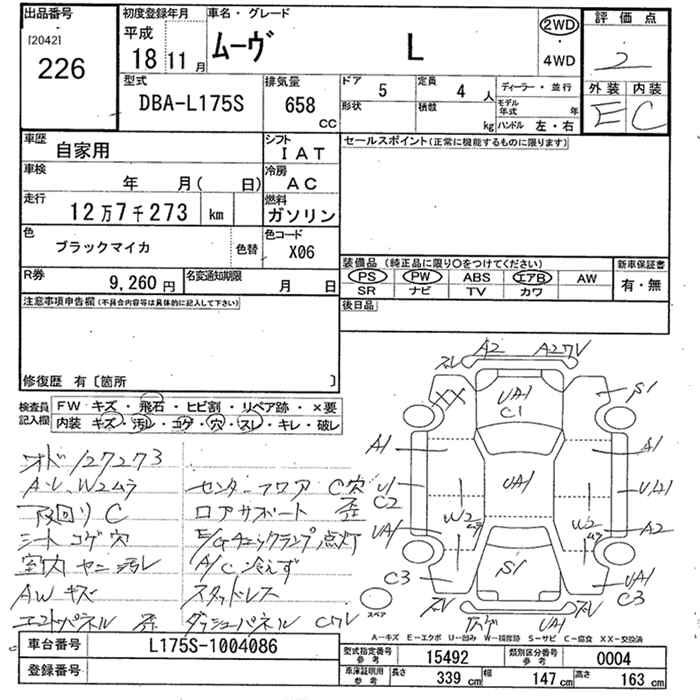 出品番号
[2042]
226
初度登録年月
平成
18 11月
車名・グレード
ムーヴ L
2WD
・
4WD
評価点
2
外装 内装
E C
型式
DBA-L175S
排気量
658
CC
ドア 5
形状
定員 4 人
積載 kg
ディーラー・並行
モデル年式 年
ハンドル 左・右
車歴
自家用
シフト
IAT
車検
年 月( 日)
冷房
AC
走行
12万7千273 km
燃料
ガソリン
色
ブラックマイカ
色替
色コード
X06
R券 9,260円
名変通知期限 月 日
セールスポイント(正常に機能するものに限ります)
装備品 (純正品に限り○をつけてください)
新車保証書
PS PW ABS エアB AW
SR ナビ TV カワ
有・無
後日品
注意事項申告欄(不具合内容等は具体的に記入して下さい)
修復歴 有〔箇所 〕
検査員記入欄
FW キズ・飛石・ヒビ割・リペア跡・×要
内装 キズ・汚レ・コゲ・穴・スレ・キレ・破レ
メオド127273
A・U、W2ムラ
下回り C
シート コゲ 穴
室内 ヤニ 汚レ
AW キズ
エコトパネル 歪
センターフロア C穴
ロアサポート 歪
E/Gチェックランプ点灯
A/C 冷えず
スタッドレス
ダッシュパネル Cワレ
A2
A27V
ズレ
XX
UA1
C1
S1
A1
A1
U1
C2
UA1
U1,A1
W2
ムラ
W2
ムラ
UA1
A2
S1
C3
UA1
C3
ズレ
ズレ
UA1
スペア
A−キズ E−エクボ U−凹み W−補修跡 S−サビ C−腐食 XX−交換済
車台番号 L175S-1004086
登録番号
型式指定番号
参考
15492
類別区分番号
参考
0004
車庫証明用
参考
長さ 339 cm 幅 147 cm 高さ 163 cm